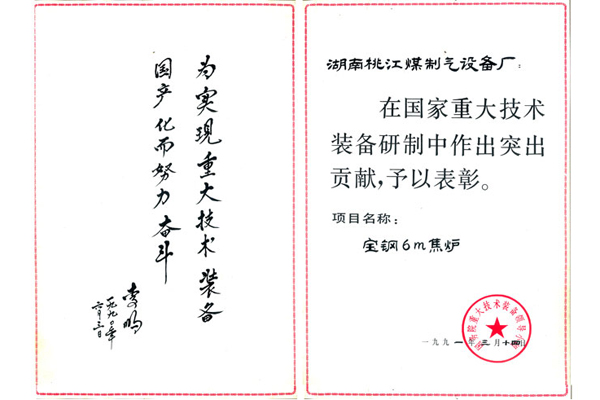 为实现重大技术装备
国产化而努力奋斗
李鹏
一九九〇年
六月三日
湖南桃江煤制气设备厂:
在国家重大技术
装备研制中作出突出
贡献,予以表彰。
项目名称:
宝钢6m焦炉
国务院重大技术装备领导小组
一九九一年三月十四日